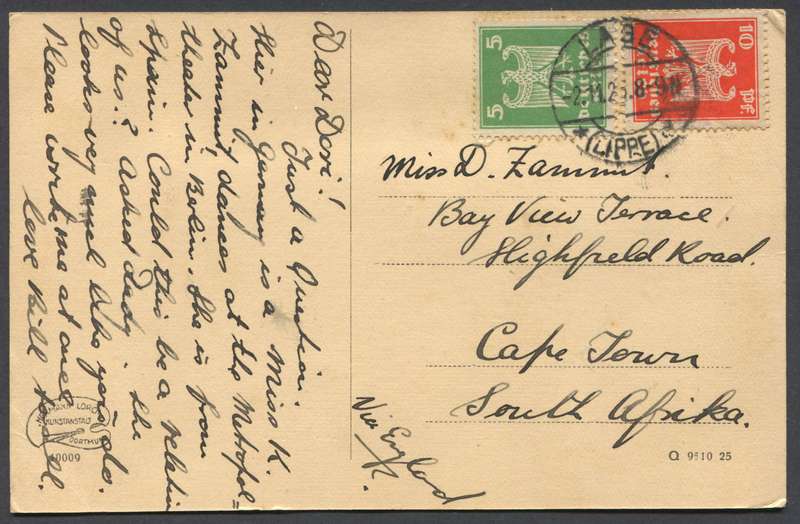 Dear Dori!
Just a Question.
Hier in Germany is a Miss K.
Zammit, dances at the Metropol=
theater in Berlin. She is from
Spain. Could this be a relation
of us? Asked Dady. She
looks very like you do.
Please write me at once
love Bill
Miss D. Zammit.
Bay View Terrace.
Highfield Road.
Cape Town
South Afrika.
Via England
5 5
10 Pf.
LAGE
2.11.25.8-9N
* (LIPPE)
KUNSTANSTALT
DORTMUND
10009
Q 9510 25